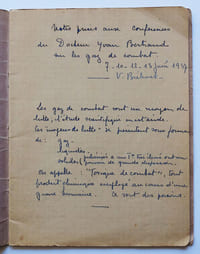 Notes prises aux Conférences
du Docteur Yvan Bertrand
sur les gaz de combat
7. 10. 11. 13 juin 1937
V. 
Les gaz de combat sont un moyen de
lutte; l'étude scientifique
Ces moyens de lutte se présentent sous forme
de : gaz
liquides
solides
pouvoir de grande dispersion
On appelle : "Toxique de combat", tout
produit chimique employé au cours d'une
guerre Ce sont des poisons.